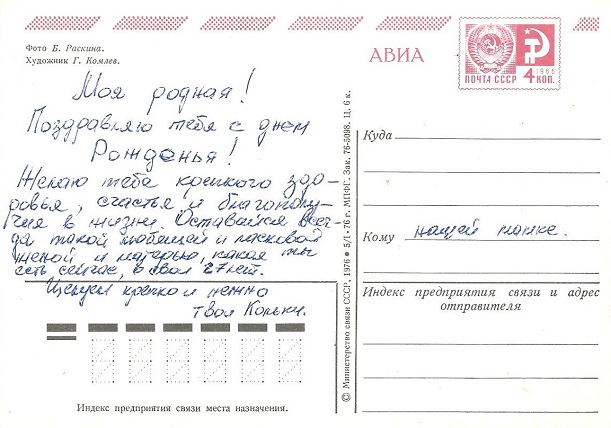 Фото Б. Раскина.
Художник Г. Комлев.
АВИА
ПОЧТА СССР
1966
4 КОП.
Моя родная!
Поздравляю тебя с днем
Рожденья!
Желаю тебе крепкого здо-
ровья, счастья и благополу-
чия в жизни. Оставайся всег-
да такой любящей и ласковой
женой и матерью, какая ты
есть сейчас, в свои 27 лет.
Целуем крепко и нежно
твои Кольки.
Куда
Кому нашей мамке.
Индекс предприятия связи и адрес
отправителя
Индекс предприятия связи места назначения.
© Министерство связи СССР, 1976 ● 5/I-76 г. МПФГ. Зак. 76-5098. Ц. 6 к.